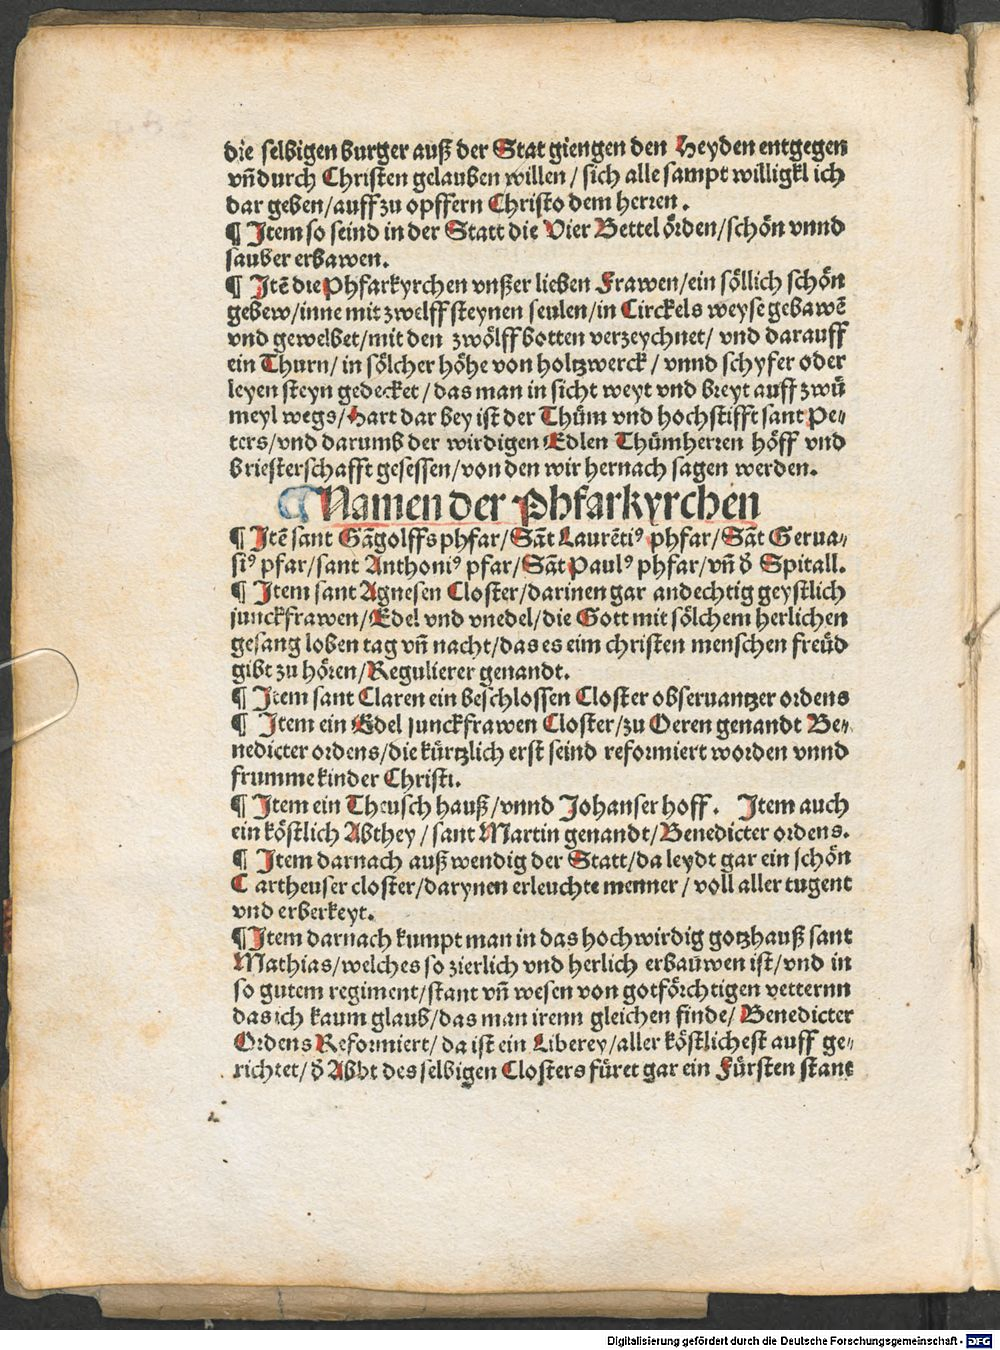 die selbigen burger auß der Stat giengen den Heyden entgegen
vñ durch Christen gelauben willen / sich alle sampt willigkl ich
dar geben/auff zu opffern Christo dem herren .
¶ Item so seind in der Statt die Vier Bettel örden/schön vnnd
sauber erbawen.
¶ Itē die Phfarkyrchen vnßer lieben Frawen/ein söllich schön
gebew/inne mit zwelff steynen seulen/in Circkels weyse gebawē
vnd gewelbet/mit den zwölff botten verzeychnet/ vnd darauff
ein Thurn/ in sölcher höhe von holtzwerck / vnnd schyfer oder
leyen steyn gedecket / das man in sicht weyt vnd breyt auff zwů
meyl wegs/Hart dar bey ist der Thům vnd hochstifft sant Pe-
ters/vnd darumb der wirdigen Edlen Thůmherren höff vnd
briesterschafft gesessen/von den wir hernach sagen werden.
¶ Namen der Phfarkyrchen
¶ Itē sant Gāgolffs phfar/Sāt Laurētiꝰ phfar/Sāt Gerua-
siꝰ pfar/sant Anthoniꝰ pfar/Sāt Paulꝰ phfar/vñ d̕ Spitall.
¶ Item sant Agnesen Closter/darinen gar andechtig geystlich
junckfrawen/Edel vnd vnedel/die Gott mit sölchem herlichen
gesang loben tag vñ nacht/das es eim christen menschen freüd
gibt zu hören/Regulierer genandt.
¶ Item sant Claren ein beschlossen Closter obseruantzer ordens
¶ Item ein Edel junckfrawen Closter/zu Oeren genandt Be-
nedicter ordens/die kürtzlich erst seind reformiert worden vnnd
frumme kinder Christi.
¶ Item ein Theusch hauß/vnnd Johanser hoff . Item auch
ein köstlich Abthey / sant Martin genandt/Benedicter ordens.
¶ Item darnach auß wendig der Statt/da leydt gar ein schön
C artheuser closter/darynen erleuchte menner / voll aller tugent
vnd erberkeyt.
¶ Item darnach kumpt man in das hochwirdig gotzhauß sant
Mathias/welches so zierlich vnd herlich erbaüwen ist/vnd in
so gutem regiment/stant vñ wesen von gotförchtigen vetternn
das ich kaum glaub/das man irenn gleichen finde/ Benedicter
Ordens Reformiert/ da ist ein Liberey/aller köstlichest auff ge-
richtet/d̕ Abbt des selbigen Closters füret gar ein Fürsten stant
Digitalisierung gefördert durch die Deutsche Forschungsgemeinschaft - DFG